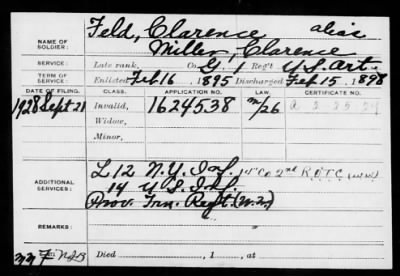 Feld, Clarence alias
NAME OF SOLDIER: Miller, Clarence
SERVICE: Late rank, Co G. 1 Reg't U.S. Art.
TERM OF SERVICE: Enlisted Feb 16 1895 Discharged Feb 15. 1898
DATE OF FILING. CLASS. APPLICATION NO. CERTIFICATE NO.
1928 Sept 21 Invalid, 1624538 A 2 25 24
Widow,
Minor,
ADDITIONAL SERVICES: L 12 N.Y. Inf. 1st Co 2nd R.O.T.C.
14 U.S. Inf.
Prov. Trn. Regt.
REMARKS:
Died , 1 , at